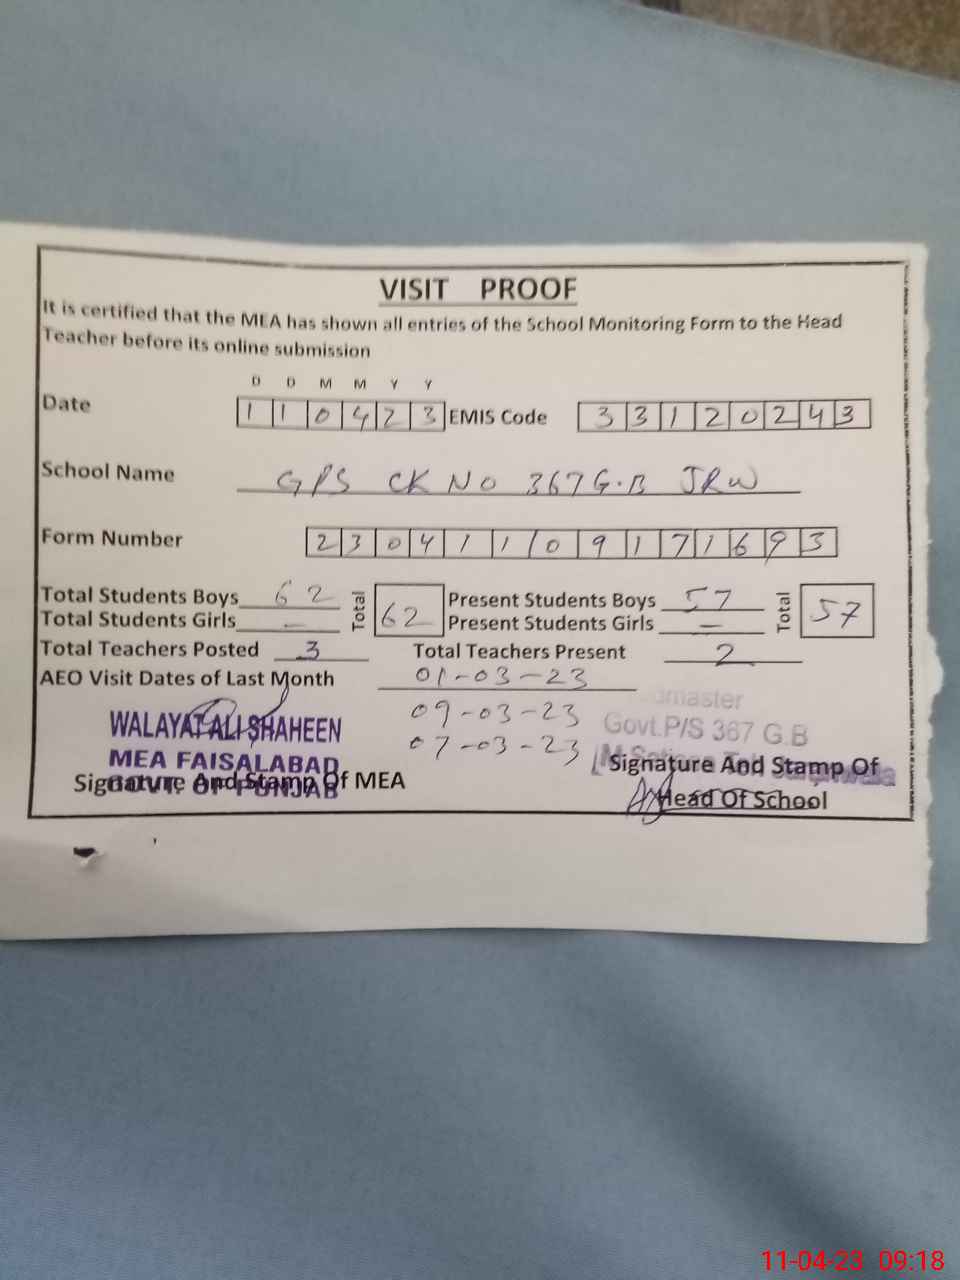 VISIT PROOF
It is certified that the MEA has shown all entries of the School Monitoring Form to the Head
Teacher before its online submission
D D M M Y Y
Date 1 1 0 4 2 3 EMIS Code 3 3 1 2 0 2 4 3
School Name GPS CK NO 367 G.B JRW
Form Number 2 3 0 4 1 1 0 9 1 7 1 6 9 3
Total Students Boys 62 Total 62 Present Students Boys 57 Total 57
Total Students Girls — Present Students Girls —
Total Teachers Posted 3 Total Teachers Present 2
AEO Visit Dates of Last Month 01-03-23
09-03-23
07-03-23
WALAYAT ALI SHAHEEN
MEA FAISALABAD
GOVT. OF PUNJAB
Signature And Stamp Of MEA
Govt.P/S 367 G.B
Signature And Stamp Of
Head Of School
11-04-23 09:18